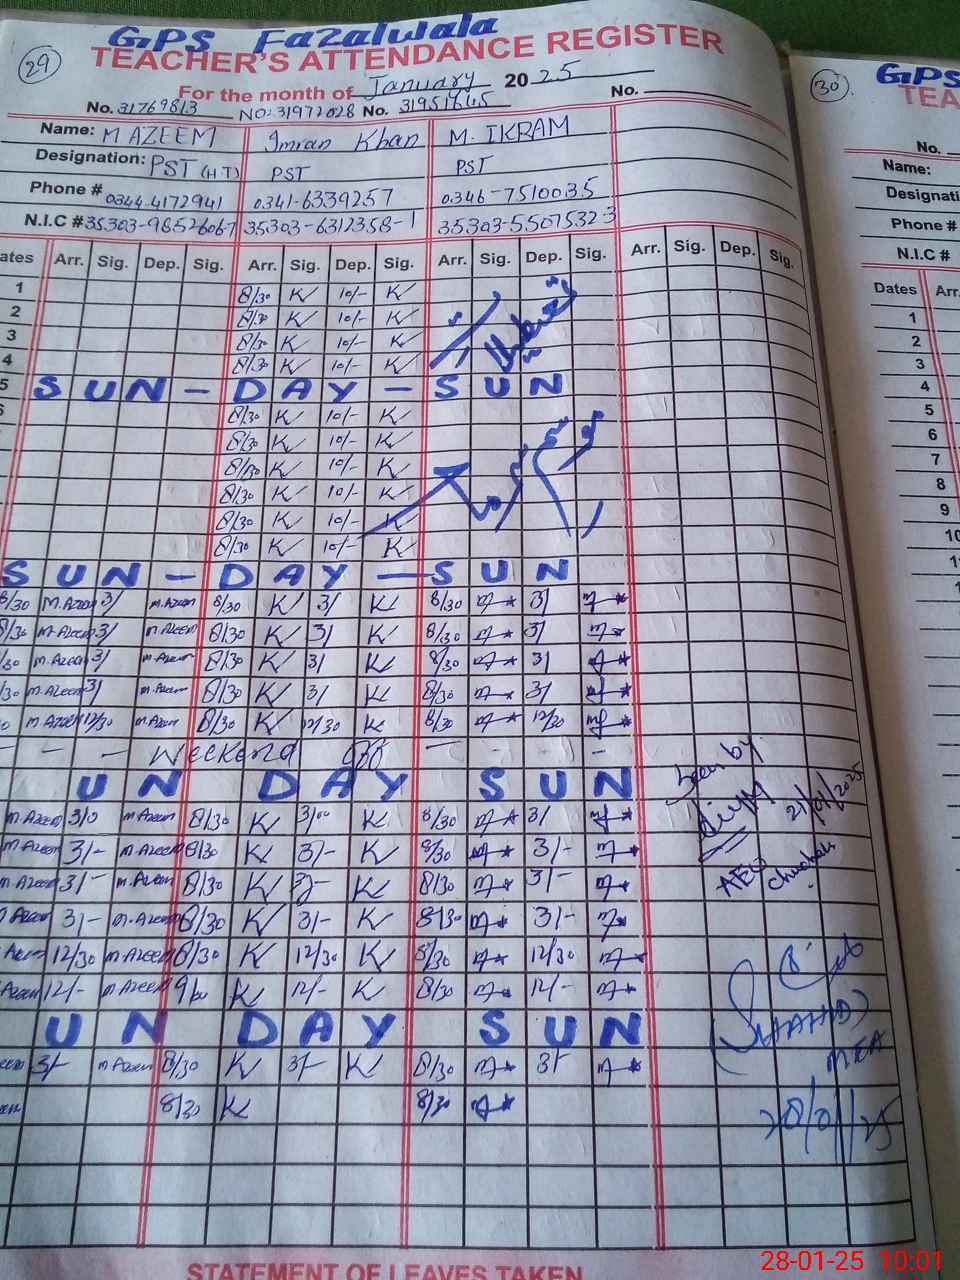 GPS Fazalwala
29
TEACHER'S ATTENDANCE REGISTER
For the month of January 2025
No. 31769813 NO: 31972028 No. 31951845 No.
Name: M AZEEM Imran Khan M. IKRAM
Designation: PST (H T) PST PST
Phone # 0344-4172941 0341-6339257 0346-7510035
N.I.C # 35303-98526067 35303-6312358-1 35303-5507532-3
ates Arr. Sig. Dep. Sig. Arr. Sig. Dep. Sig. Arr. Sig. Dep. Sig. Arr. Sig. Dep. Sig.
1 8/30 K 10/- K
2 8/30 K 10/- K
3 8/30 K 10/- K
4 8/30 K 10/- K
5 SUN - DAY - SUN
6 8/30 K 10/- K
8/30 K 10/- K
8/30 K 10/- K
8/30 K 10/- K
8/30 K 10/- K
8/30 K 10/- K
SUN - DAY - SUN
8/30 M.Azeem 3/ M.Azeem 8/30 K 3/ K 8/30 3/
8/30 M.Azeem 3/ M.Azeem 8/30 K 3/ K 8/30 3/
/30 M.Azeem 3/ M.Azeem 8/30 K 3/ K 8/30 3/
/30 M.Azeem 3/ M.Azeem 8/30 K 3/ K 8/30 3/
0 M.Azeem 12/30 M.Azeem 8/30 K 12/30 K 8/30 12/30
- - - Weekend Off - - - -
UN DAY SUN
M.Azeem 3/0 M.Azeem 8/30 K 3/00 K 8/30 3/
M.Azeem 3/- M.Azeem 8/30 K 3/- K 8/30 3/-
M.Azeem 3/- M.Azeem 8/30 K 3/- K 8/30 3/-
Azeem 3/- M.Azeem 8/30 K 3/- K 8/30 3/-
Azeem 12/30 M.Azeem 8/30 K 12/30 K 8/30 12/30
Azeem 12/- M.Azeem K 12/- K 8/30 12/-
UN DAY SUN
eem 3/- M.Azeem 8/30 K 3/- K 8/30 3/-
8/30 K 8/30
Seen by
21/01/2025
AEO
(SHAHID)
MEA
28/01/25
STATEMENT OF LEAVES TAKEN
30
GPS
TEA
No.
Name:
Designati
Phone #
N.I.C #
Dates Arr.
1
2
3
4
5
6
7
8
9
10
1
28-01-25 10:01